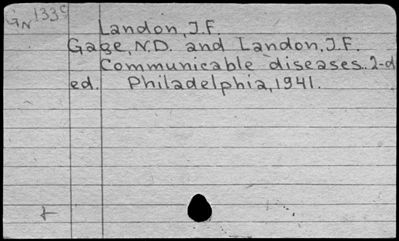 GN1339
Landon, J.F.
Gage, N.D. and Landon, J.F.
Communicable diseases. 2-d
ed. Philadelphia, 1941.